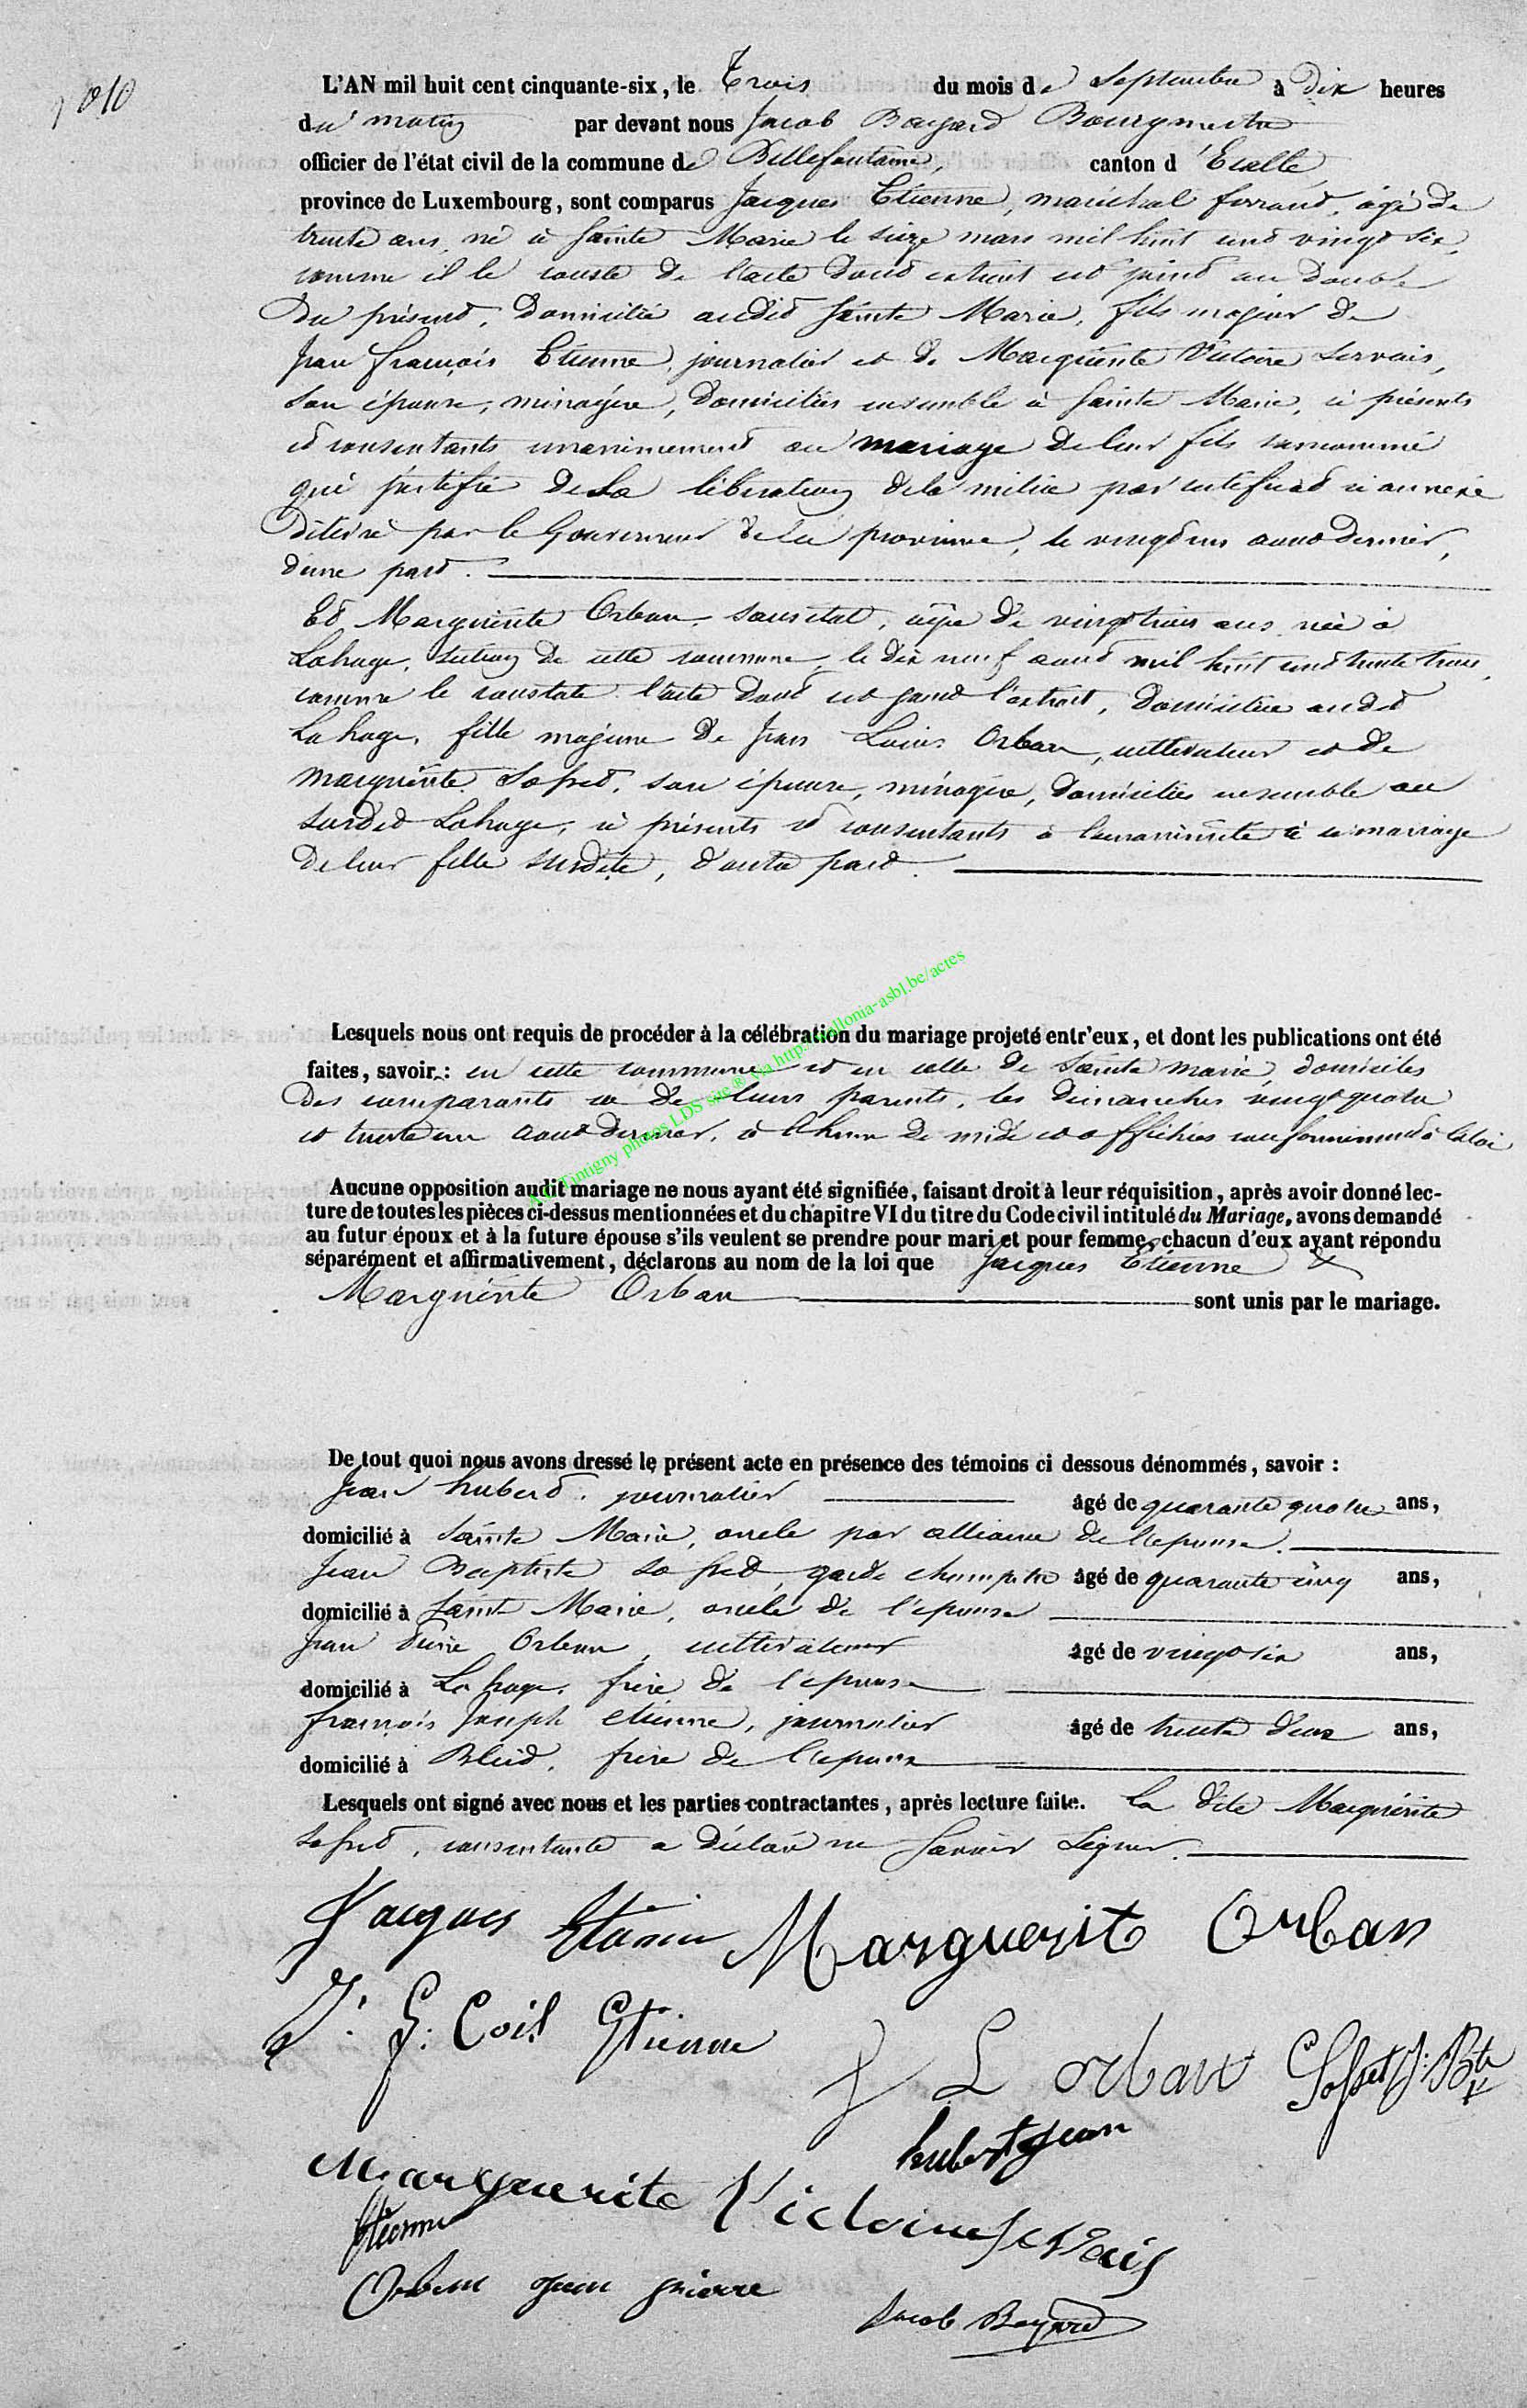 N° 10
L'AN mil huit cent cinquante-six, le Trois du mois de Septembre à Dix heures
du matin par devant nous Jacob Bayard Bourgmestre
officier de l'état civil de la commune de Bellefontaine, canton d'Etalle
province de Luxembourg, sont comparus Jacques Etienne, maréchal ferrant, âgé de
trente ans, né à Sainte Marie le seize mars mil huit cent vingt six,
comme il le conste de l'acte dont extrait est joint au double
du présent, domicilié audit Sainte Marie, fils majeur de
Jean François Etienne, journalier et de Marguérite Victoire Servais,
son épouse, ménagère, domiciliés ensemble à Sainte Marie, ci présents
et consentants unanimement au mariage de leur fils surnommé
qui justifie de sa libération de la milice par certificat ci annexé
délivré par le Gouverneur de la province, le vingt un aout dernier,
d'une part.
Et Marguérite Orban, sans état, agée de vingt trois ans, née à
Lahage, section de cette commune, le dix neuf aout mil huit cent trente trois,
comme le constate l'acte dont est joint l'extrait, domiciliée audit
Lahage, fille majeure de Jean Louis Orban, cultivateur et de
Marguérite Sosset, son épouse, ménagère, domiciliés ensemble au
susdit Lahage, ci présents et consentants à l'unanimité à ce mariage
de leur fille susdite, d'autre part.
A.C. Tintigny photos LDS site ® via http://wallonia-asbl.be/actes
Lesquels nous ont requis de procéder à la célébration du mariage projeté entr'eux, et dont les publications ont été
faites, savoir : en cette commune et en celle de Sainte Marie, domiciles
des comparants et de leurs parents, les dimanches vingt quatre
et trente un aout dernier, à l'heure de midi et affichées conformément à la loi
Aucune opposition audit mariage ne nous ayant été signifiée, faisant droit à leur réquisition, après avoir donné lec-
ture de toutes les pièces ci-dessus mentionnées et du chapitre VI du titre du Code civil intitulé du Mariage, avons demandé
au futur époux et à la future épouse s'ils veulent se prendre pour mari et pour femme, chacun d'eux ayant répondu
séparément et affirmativement, déclarons au nom de la loi que Jacques Etienne &
Marguérite Orban sont unis par le mariage.
De tout quoi nous avons dressé le présent acte en présence des témoins ci dessous dénommés, savoir :
Jean hubert, journalier âgé de quarante quatre ans,
domicilié à Sainte Marie, oncle par alliance de l'epouse.
Jean Baptiste Sosset, garde champetre âgé de quarante cinq ans,
domicilié à Sainte Marie, oncle de l'epouse
Jean Pierre Orban, cultivateur âgé de vingt six ans,
domicilié à Lahage, frère de l'epouse
francois Joseph etienne, journalier âgé de trente deux ans,
domicilié à Bleid, frère de l'epoux
Lesquels ont signé avec nous et les parties contractantes, après lecture faite. La dite Marguérite
Sosset, consentante a déclaré ne savoir signer.
Jacques Etienne Marguerit Orban
J: f: Etienne
J L orban Sosset J: Bte
hubert Jean
Marguerite Victoire Servais
Etienne
Orban jean pierre
Jacob Bayard